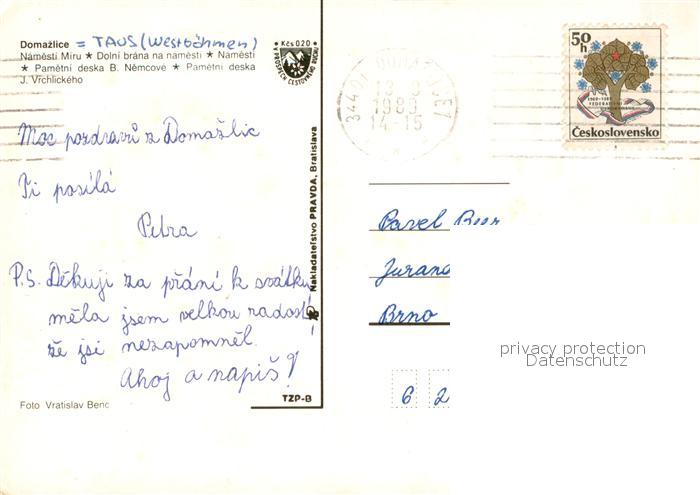 Domažlice = TAUS (Westböhmen)
Náměstí Míru * Dolní brána na náměstí * Náměstí
* Pamětní deska B. Němcové * Pamětní deska
J. Vrchlického
Kčs 0,20
VE PROSPĚCH CESTOVNÍHO RUCHU
Moc pozdravů z Domažlic
Ti posílá
Petra
P.S. Děkuji za přání k svátku,
měla jsem velkou radost
že jsi nezapomněl.
Ahoj a napiš!
Foto Vratislav Benc
TZP-B
Nakladatelstvo PRAVDA, Bratislava
344 01
13
1989
14-15
50h
1968-1988
Československo
Pavel
Brno
privacy protection
Datenschutz
6 2